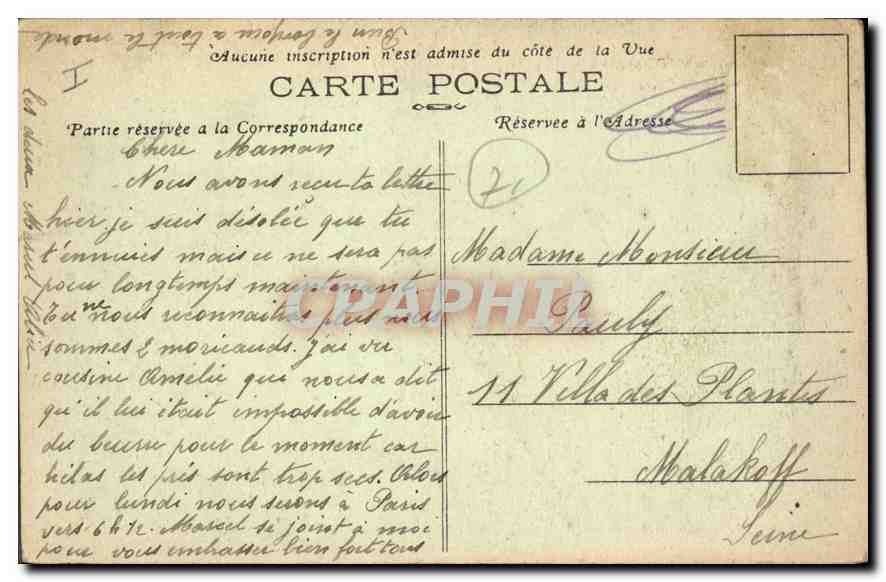 Bien le bonjour à tout le monde
Aucune inscription n'est admise du côté de la Vue
CARTE POSTALE
Partie réservée a la Correspondance
Réservée à l'Adresse
I
71
Chere Maman
Nous avons recu ta lettre
hier je suis désolée que tu
t'ennuies mais ce ne sera pas
pour longtemps maintenant.
Tu ne nous reconnaitras plus nous
sommes 2 moricauds. J'ai vu
cousine Amelie qui nous a dit
qu'il lui était impossible d'avoir
du beurre pour le moment car
hélas les prés sont trop secs. Alors
pour lundi nous serons à Paris
vers 6h½. Marcel se joint à moi
pour vous embrasser bien fort tous
les deux Marcel
Madame Monsieur
Pauly
11 Villa des Plantes
Malakoff
Seine
CPAPHIL